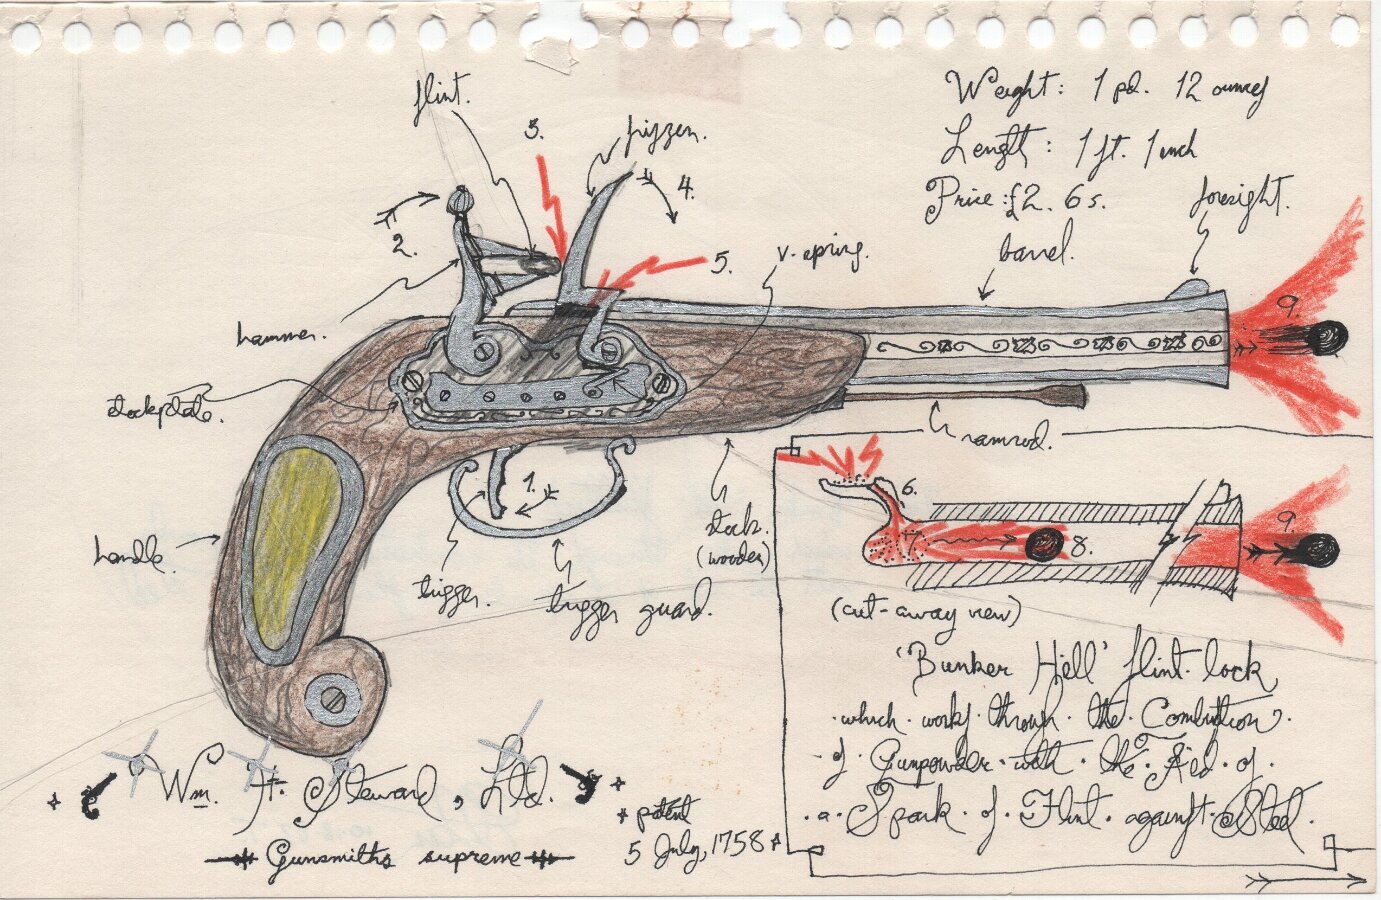 flint.
3.
frizzen.
Weight: 1 pd. 12 ounces
Length: 1 ft. 1 inch
Price: £2. 6s.
foresight.
4.
2.
5.
v-spring.
barrel.
9.
hammer.
stockplate.
ramrod.
1.
6.
handle.
trigger.
trigger guard.
stock.
(wooden)
7
8.
9.
(cut-away view)
'Bunker Hill' flint-lock
·which·works·through·the·Combustion·
·of·Gunpowder·with·the·Aid·of·
·a·Spark·of·Flint·against·Steel.
Wm. Ft. Steward, Ltd.
Gunsmiths supreme
patent
5 July, 1758